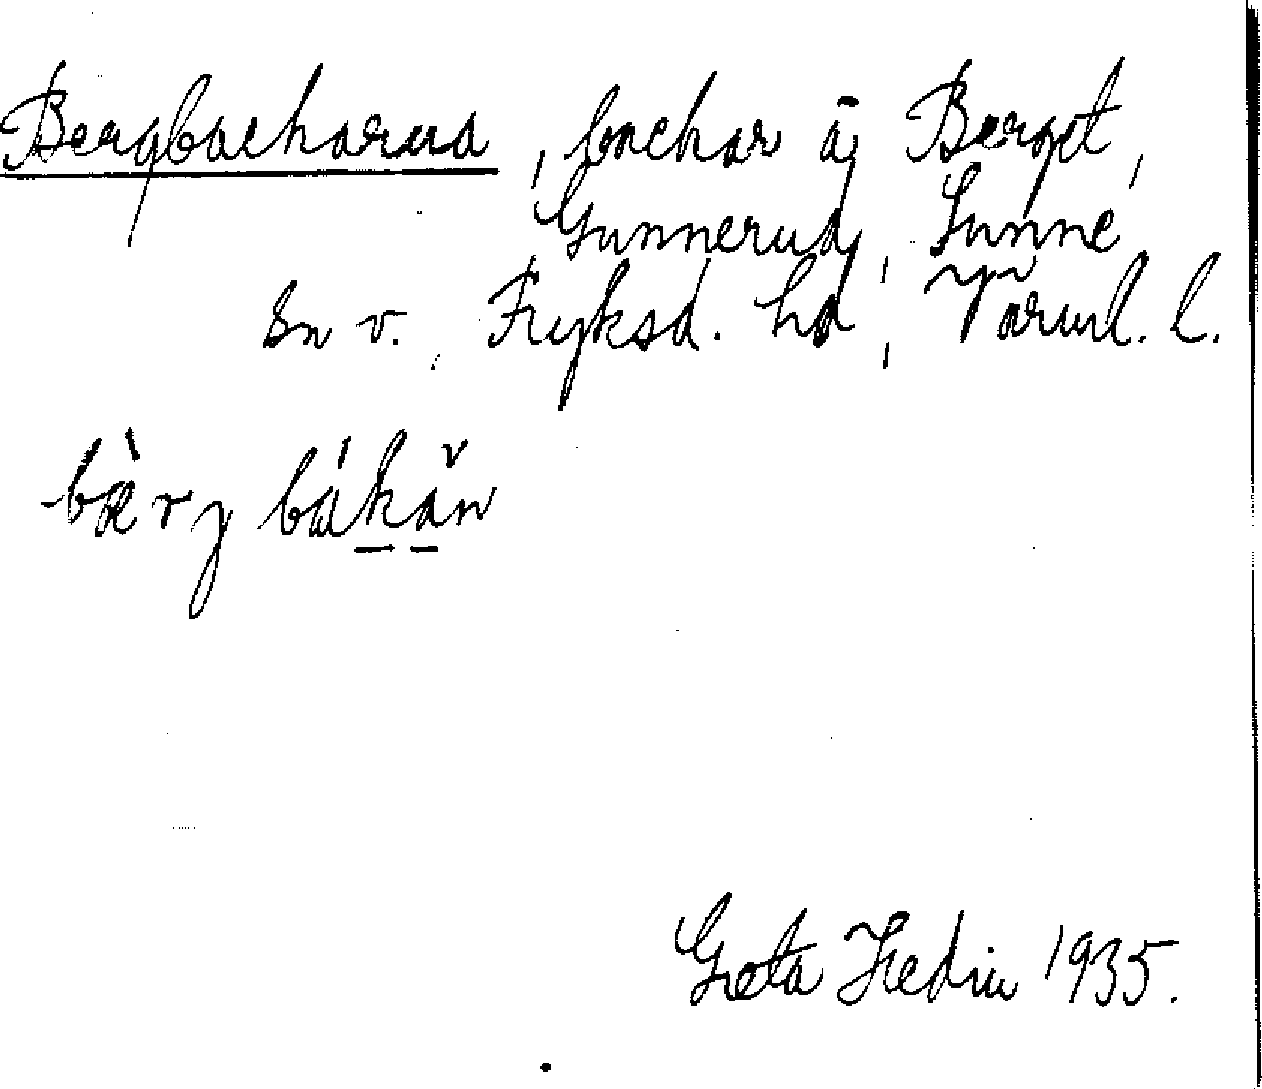 Bergbackarna, backar å Berget,
Gunnerud, Sunne
sn v. Fryksd. hd, Värml. l.
bæ̀rg bákăn
Greta Hedin 1935.